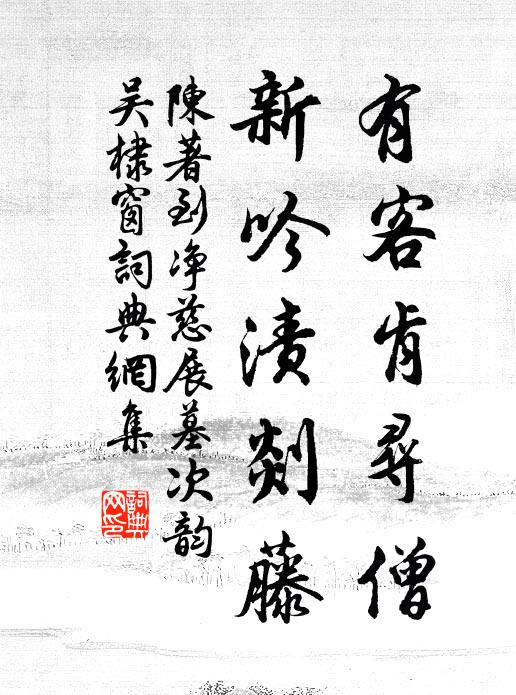 有客肯尋僧
新吟漬剡藤
陳著到净慈展墓次韵
吴棣窗詞典網集
詞典
网印